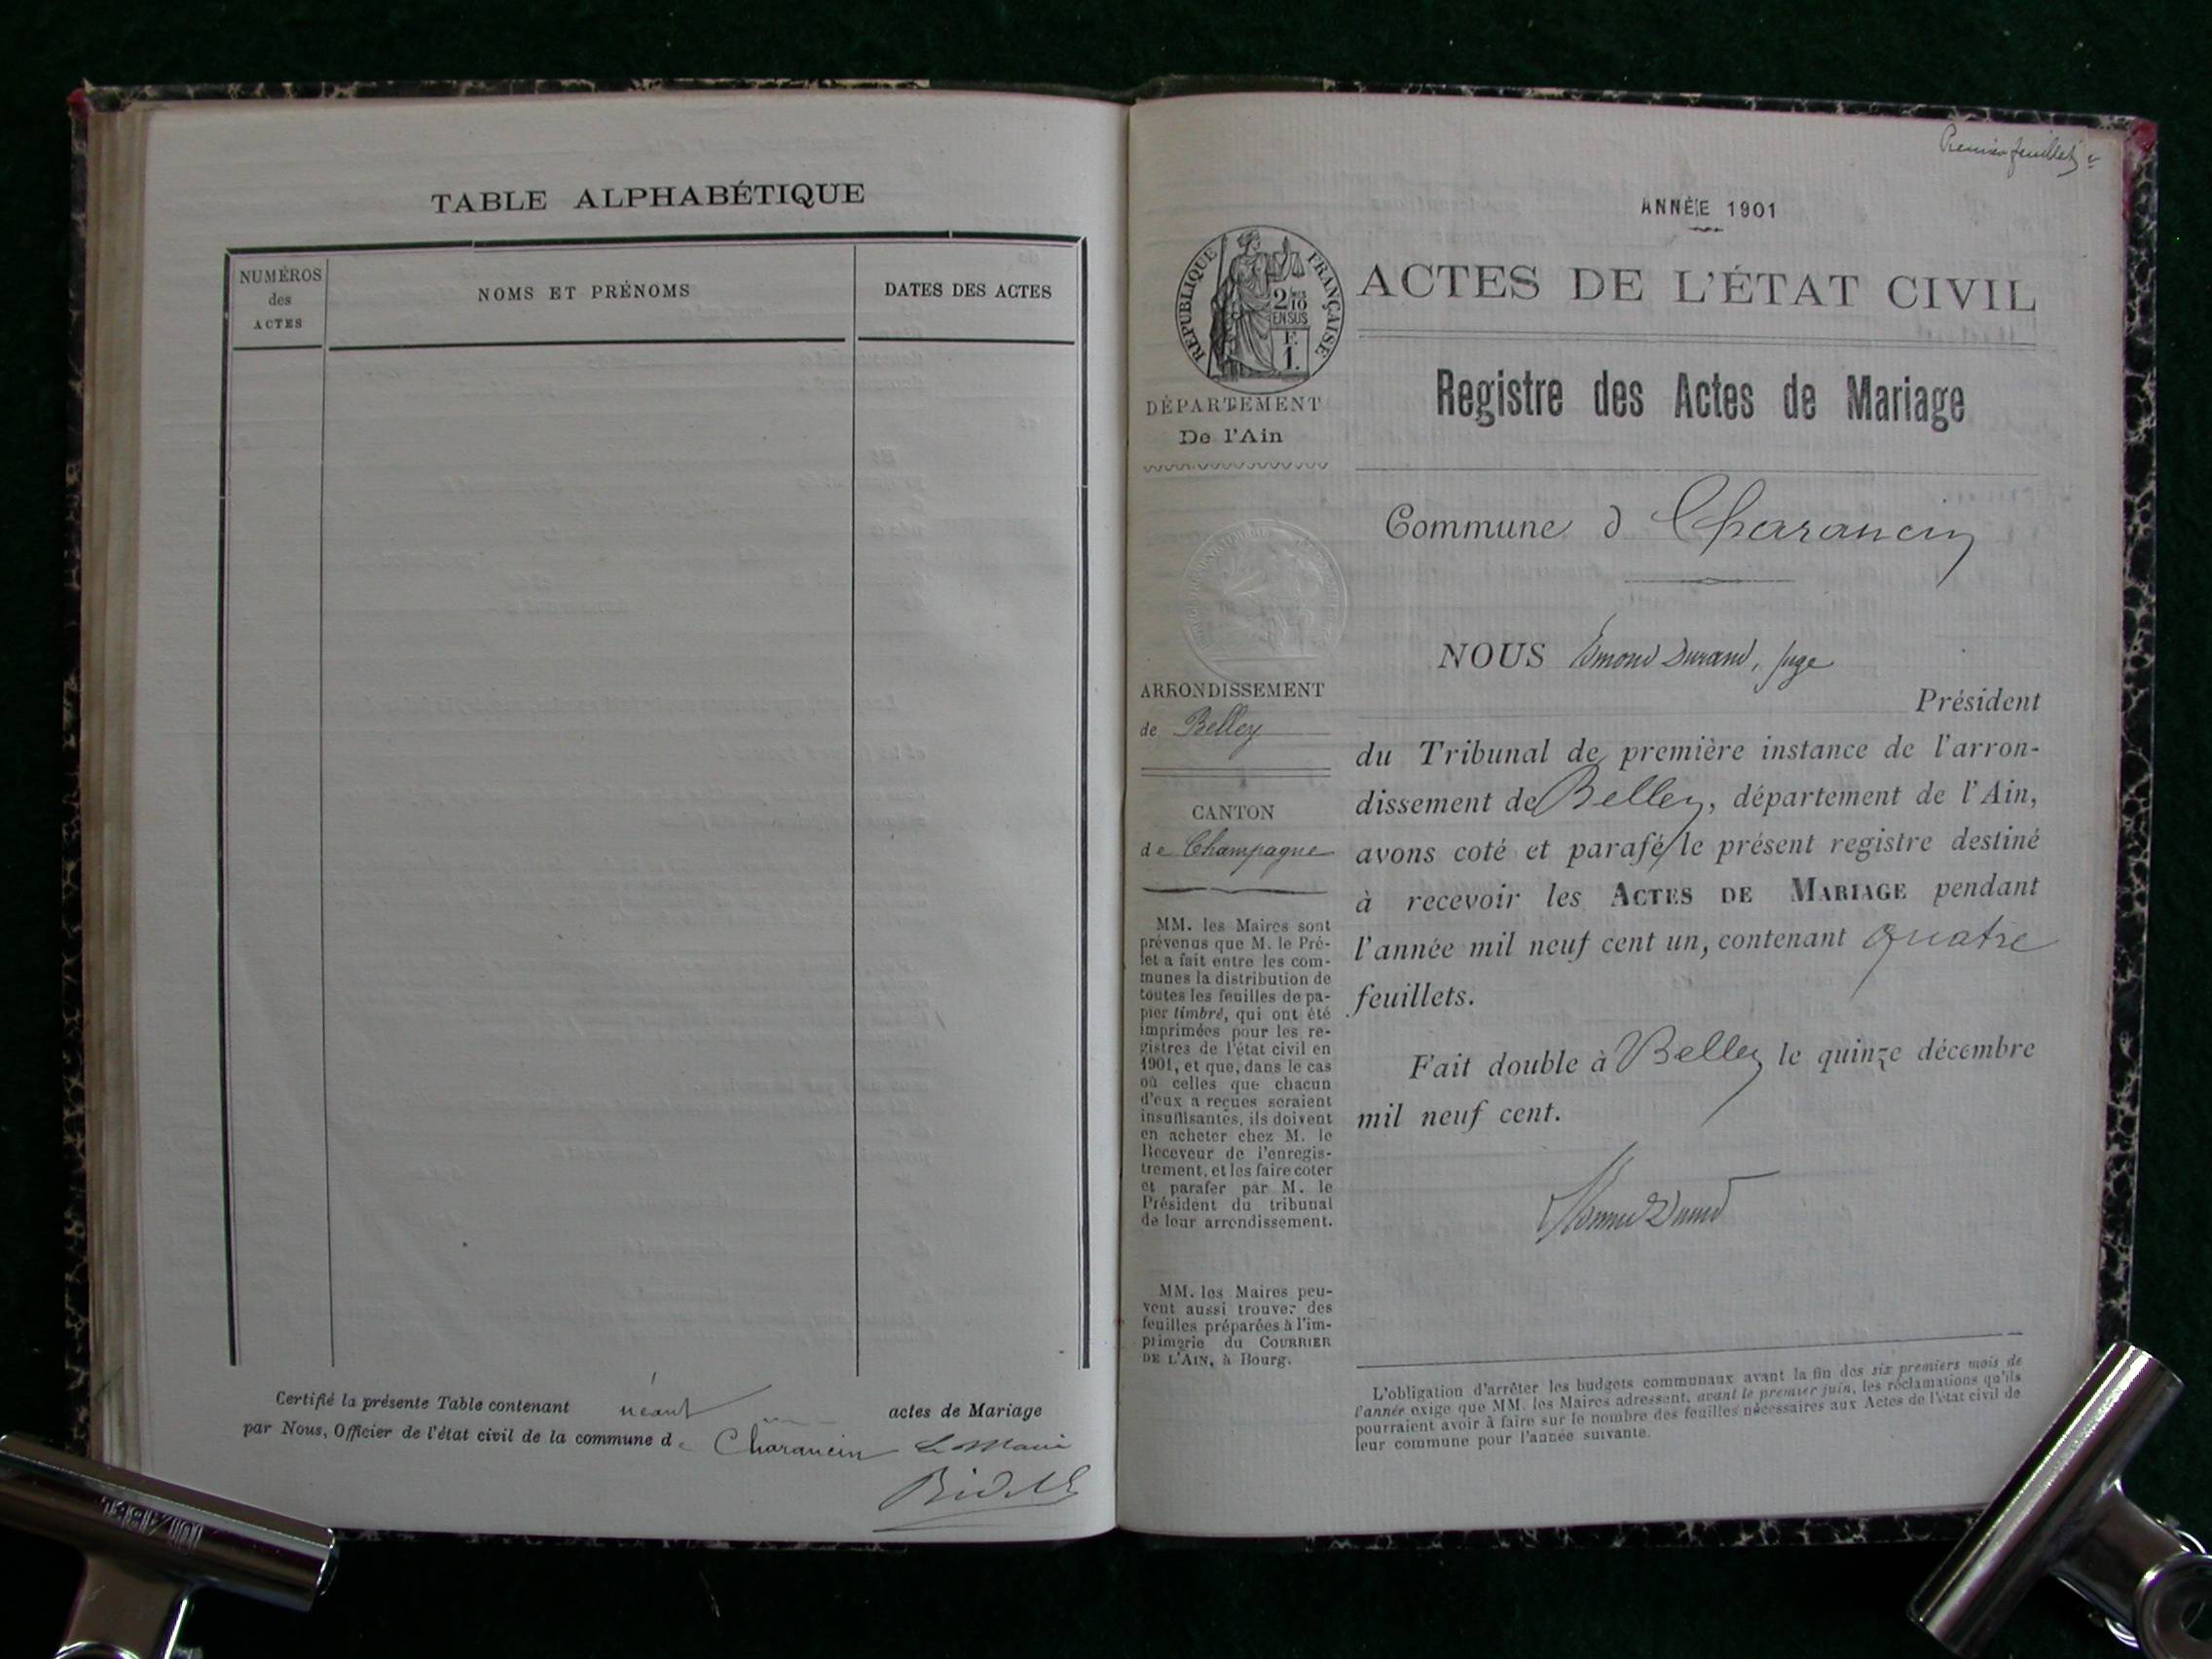 TABLE ALPHABÉTIQUE
NUMÉROS
des
ACTES
NOMS ET PRÉNOMS
DATES DES ACTES
Certifié la présente Table contenant néant actes de Mariage
par Nous, Officier de l'état civil de la commune de Charancin Le Maire
Premier feuillet
ANNÉE 1901
RÉPUBLIQUE FRANÇAISE
2/10
EN SUS
F.
1.
ACTES DE L'ÉTAT CIVIL
Registre des Actes de Mariage
DÉPARTEMENT
De l'Ain
Commune d Charancin
NOUS Edmond Durand, juge
Président
du Tribunal de première instance de l'arron-
dissement de Belley, département de l'Ain,
avons coté et parafé le présent registre destiné
à recevoir les ACTES DE MARIAGE pendant
l'année mil neuf cent un, contenant quatre
feuillets.
Fait double à Belley le quinze décembre
mil neuf cent.
ARRONDISSEMENT
de Belley
CANTON
de Champagne
MM. les Maires sont
prévenus que M. le Pré-
fet a fait entre les com-
munes la distribution de
toutes les feuilles de pa-
pier timbré, qui ont été
imprimées pour les re-
gistres de l'état civil en
1901, et que, dans le cas
où celles que chacun
d'eux a reçues seraient
insuffisantes, ils doivent
en acheter chez M. le
Receveur de l'enregis-
trement, et les faire coter
et parafer par M. le
Président du tribunal
de leur arrondissement.
MM. les Maires peu-
vent aussi trouver des
feuilles préparées à l'im-
primerie du COURRIER
DE L'AIN, à Bourg.
L'obligation d'arrêter les budgets communaux avant la fin des six premiers mois de
l'année exige que MM. les Maires adressent, avant le premier juin, les réclamations qu'ils
pourraient avoir à faire sur le nombre des feuilles nécessaires aux Actes de l'état civil de
leur commune pour l'année suivante.